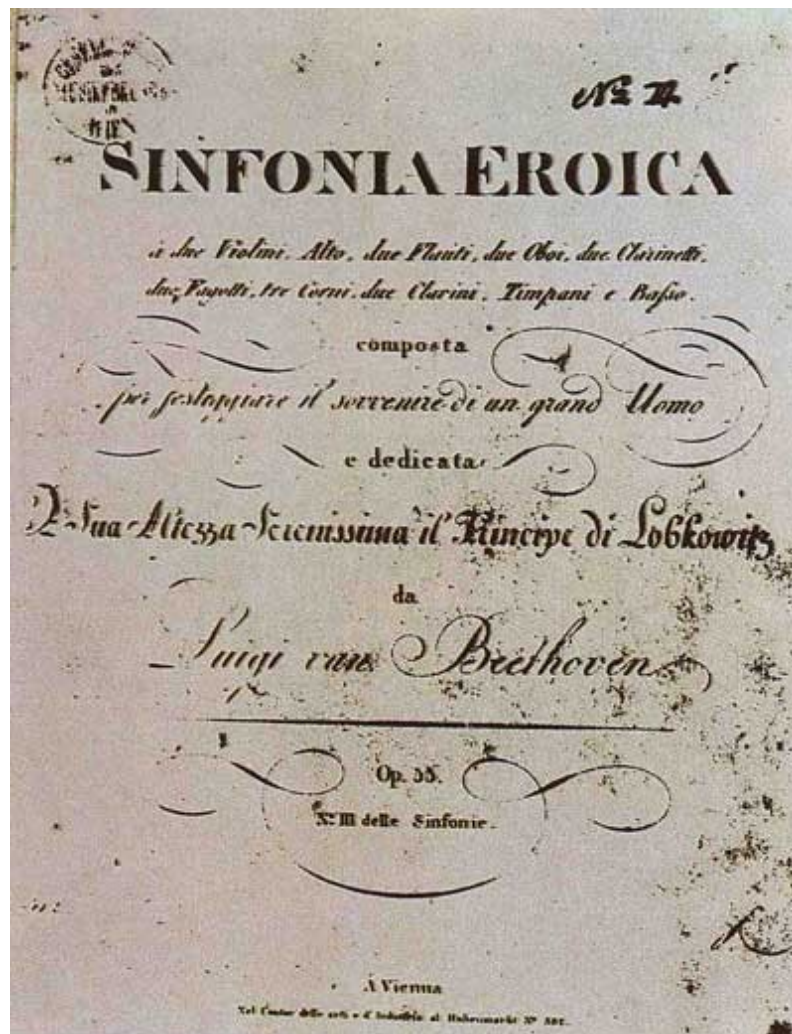 SINFONIA EROICA
à due Violini, Alto, due Flauti, due Oboi, due Clarinetti,
due Fagotti, tre Corni, due Clarini, Timpani e Basso.
composta
per festeggiare il sovvenire di un grand Uomo
e dedicata
A Sua Altezza Serenissima il Principe di Lobkowitz
da
Luigi van Beethoven
Op. 55.
No. III delle Sinfonie.
A Vienna
Nel Contor delle arti e d'Industria al Hohenmarkt No 582.